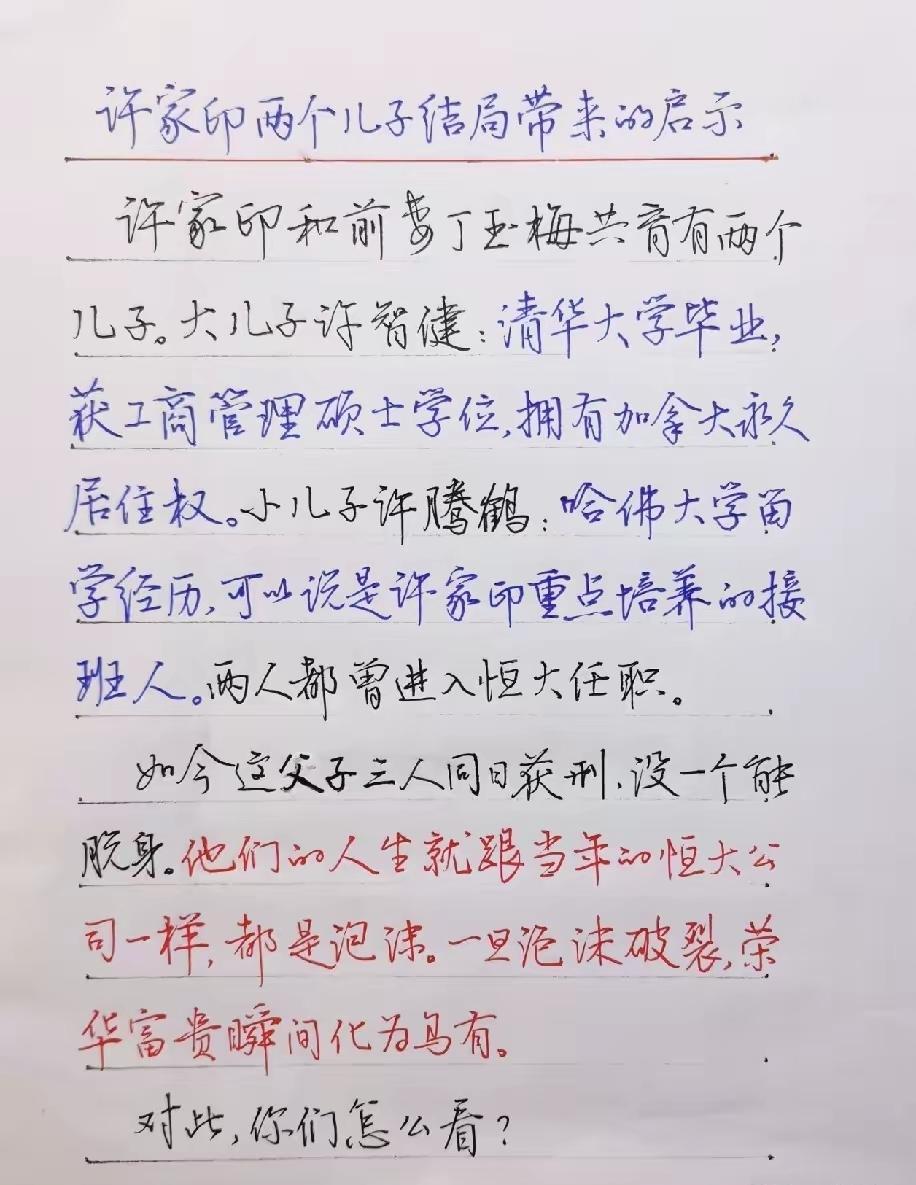 许家印两个儿子结局带来的启示
许家印和前妻丁玉梅共育有两个
儿子。大儿子许智健:清华大学毕业,
获工商管理硕士学位,拥有加拿大永久
居住权。小儿子许腾鹤:哈佛大学留
学经历,可以说是许家印重点培养的接
班人。两人都曾进入恒大任职。
如今这父子三人同日获刑,没一个能
脱身。他们的人生就跟当年的恒大公
司一样,都是泡沫。一旦泡沫破裂,荣
华富贵瞬间化为乌有。
对此,你们怎么看?